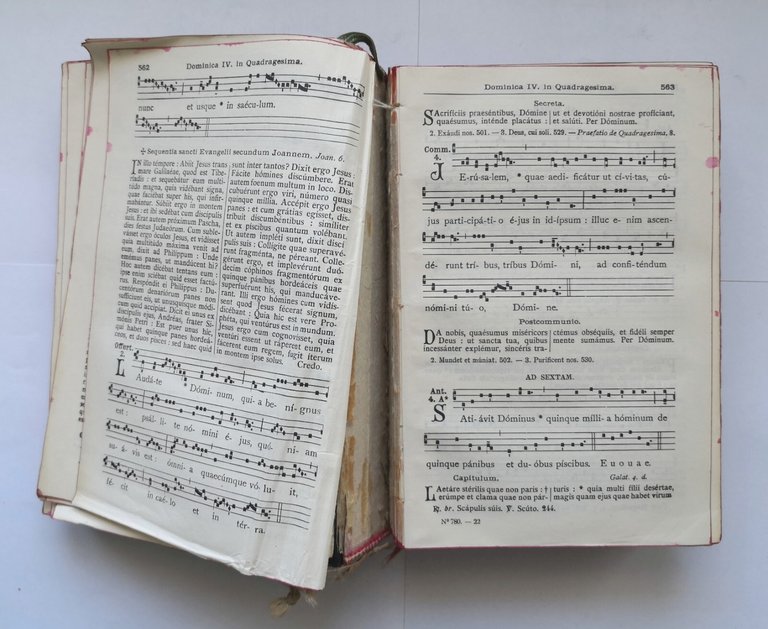 562 Dominica IV. in Quadragesima.
nunc et usque * in saéculum.
✠ Sequentia sancti Evangelii secundum Joannem, Joan. 6.
IN illo témpore : Abiit Jesus trans
mare Galilaéae, quod est Tibe-
ríadis : et sequebátur eum multi-
túdo magna, quia vidébant signa,
quae faciébat super his, qui infir-
mabántur. Súbiit ergo in montem
Jesus : et ibi sedébat cum discípulis
suis. Erat autem próximum Pascha,
dies festus Judaeórum. Cum suble-
vásset ergo óculos Jesus, et vidísset
quia multitúdo máxima venit ad
eum, dixit ad Philíppum : Unde
emémus panes, ut mandúcent hi?
Hoc autem dicébat tentans eum :
ipse enim sciébat quid esset factú-
rus. Respóndit ei Philíppus : Du-
centórum denariórum panes non
suffíciunt eis, ut unusquísque módi-
cum quid accípiat. Dicit ei unus ex
discípulis ejus, Andréas, frater Si-
mónis Petri : Est puer unus hic,
qui habet quinque panes hordeá-
ceos, et duos pisces : sed haec quid
sunt inter tantos? Dixit ergo Jesus :
Fácite hómines discúmbere. Erat
autem foenum multum in loco. Dis-
cubuérunt ergo viri, número quasi
quinque míllia. Accépit ergo Jesus
panes : et cum grátias egísset, dis-
tríbuit discumbéntibus : simíliter
et ex píscibus quantum volébant.
Ut autem impléti sunt, dixit discí-
pulis suis : Collígite quae superavé-
runt fragménta, ne péreant. Collé-
gérunt ergo, et implevérunt duó-
decim cóphinos fragmentórum ex
quinque pánibus hordeáceis quae
superfuérunt his, qui manducáve-
rant. Illi ergo hómines cum vidís-
sent quod Jesus fécerat signum,
dicébant : Quia hic est vere Pro-
phéta, qui ventúrus est in mundum.
Jesus ergo cum cognovísset, quia
ventúri essent ut ráperent eum, et
fácerent eum regem, fugit íterum
in montem ipse solus. Credo.
Offert.
2.
LAudáte * Dóminum, qui-a be- ní-gnus
est : psál-li-te nó-mini é-jus, quó- ni-am
su-á-vis est : ómni-a quaecúmque vó-lu-it,
fé-cit in caé-lo et in tér-ra.
Dominica IV. in Quadragesima. 563
Secreta.
SAcrifíciis praeséntibus, Dómine
quaésumus, inténde placátus :
ut et devotióni nostrae profíciant,
et salúti. Per Dóminum.
2. Exáudi nos. 501. — 3. Deus, cui soli. 529. — Praefatio de Quadragesima, 8.
Comm.
4.
JE-rú-sa-lem, * quae aedi-ficá-tur ut cí-vi-tas, cú-
jus parti-cipá-ti-o é-jus in id-ípsum : illuc e-nim ascen-
dé- runt trí- bus, tríbus Dómi- ni, ad confi-téndum
nómi-ni tú-o, Dómi- ne.
Postcommunio.
DA nobis, quaésumus miséricors
Deus : ut sancta tua, quibus
incessánter explémur, sincéris tra-
ctémus obséquiis, et fidéli semper
mente sumámus. Per Dóminum.
2. Mundet et múniat. 502. — 3. Purificent nos. 530.
AD SEXTAM.
Ant.
4. A*
SAti-ávit Dóminus * quinque mílli-a hóminum de
quinque pánibus et du-óbus píscibus. E u o u a e.
Capitulum. Galat. 4. d.
LAetáre stérilis quae non paris :
erúmpe et clama quae non pár-
turis : * quia multi fílii desértae,
magis quam ejus quae habet virum
℟. br. Scápulis súis. ℣. Scúto. 244.
Nº 780. — 22